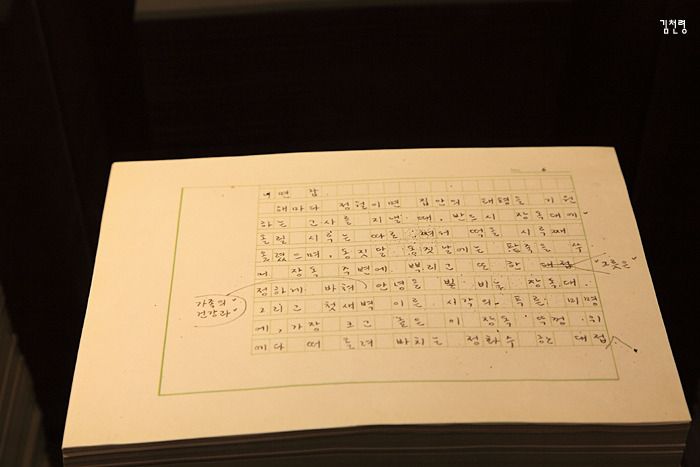 김천령
해마다 정월이면 집안의 태평을 기원
하는 고사를 지낼 때, 반드시 장독대에
올릴 시루는 따로 쪄서 떡을 시루째
올렸으며, 동짓달 동짓날에는 팥죽을 쑤
어 장독 주변에 뿌리고 또 한 대접
정하게 바쳐 안녕을 빌 비는 장독대.
가족의
건강과
그리고 첫새벽 이른 시각의 푸른 미명
에, 가장 크고 좋은 이 장독 뚜껑 위
에다 떠 올려 바치는 정화수 한 대접